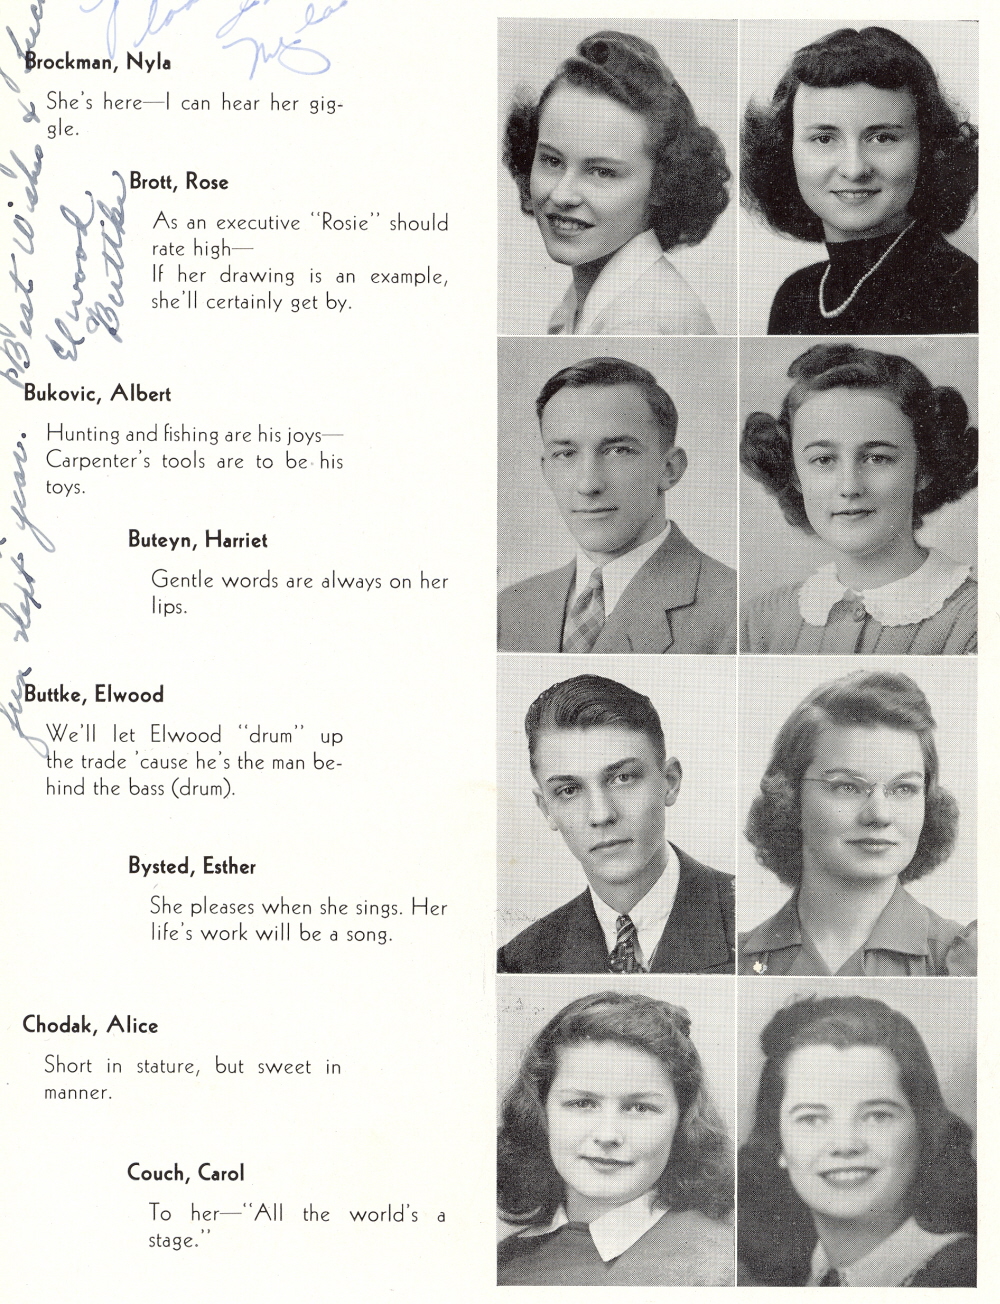 Brockman, Nyla
She's here—I can hear her gig-
gle.
Brott, Rose
As an executive "Rosie" should
rate high—
If her drawing is an example,
she'll certainly get by.
Bukovic, Albert
Hunting and fishing are his joys—
Carpenter's tools are to be his
toys.
Buteyn, Harriet
Gentle words are always on her
lips.
Buttke, Elwood
We'll let Elwood "drum" up
the trade 'cause he's the man be-
hind the bass (drum).
Bysted, Esther
She pleases when she sings. Her
life's work will be a song.
Chodak, Alice
Short in stature, but sweet in
manner.
Couch, Carol
To her—"All the world's a
stage."
Best Wishes &
fun next year.
Elwood
Buttke